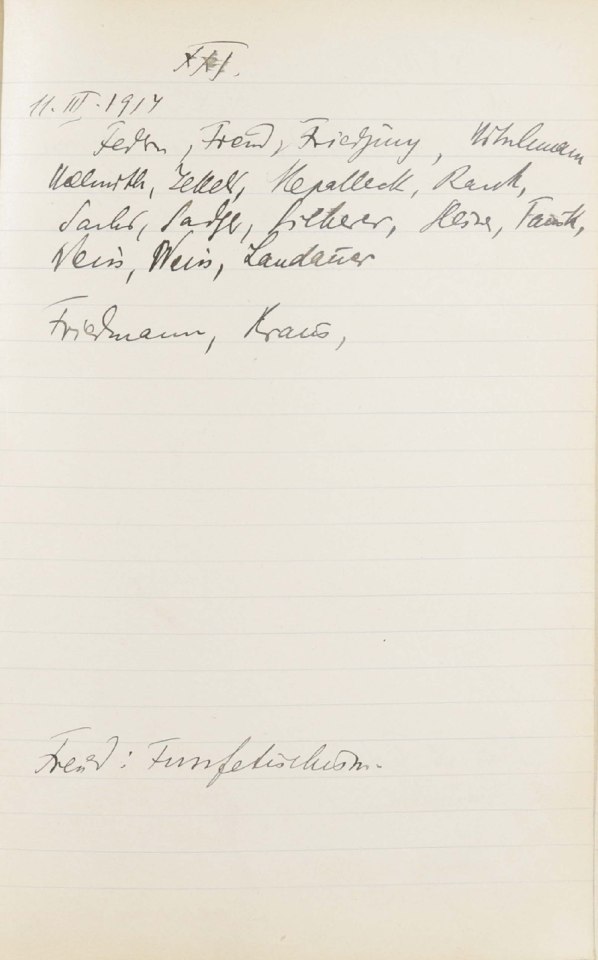 XXI.
11. III. 1914
Federn, Freud, Friedjung, Hitschmann
Hellmuth, Jekels, Nepalleck, Rank,
Sachs, Sadger, Silberer, Tausk,
Weiss, Weiss, Landauer
Friedmann, Kraus,
Freud: Fussfetischism.